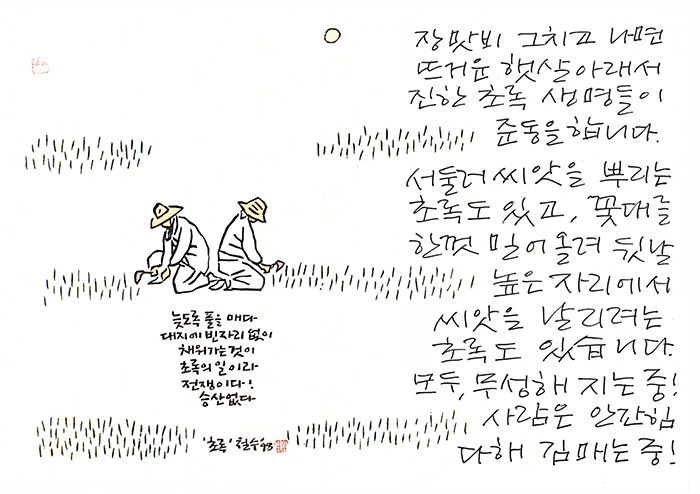 장맛비 그치고 나면
뜨거운 햇살아래서
진한 초록 생명들이
준동을합니다.
서둘러 씨앗을 뿌리는
초록도 있고, 꽃대를
한껏 밀어 올려 뒷날
높은 자리에서
씨앗을 날리려는
초록도 있습니다.
모두, 무성해 지는 중!
사람은 안간힘
다해 김매는 중!
늦도록 풀을 매다
대지에 빈자리 없이
채워가는 것이
초록의 일이라
전쟁이다!
승산없다
'초록' 철수 '98